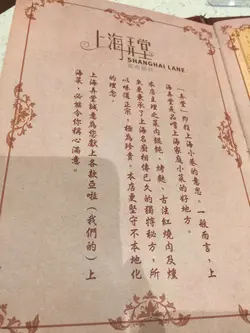 上海弄堂
SHANGHAI LANE
「弄堂」即指上海小巷的意思。一般而言，上
海弄堂是品嚐上海家庭小菜的好地方。
本店主理之菜肉餛飩、烤麩、古法紅燒肉及燻
魚秉承了上海名廚相傳已久的獨特秘方，所
以味道正宗，極為珍貴。本店更堅守不本地化
的理念。
上海弄堂誠意為您獻上各款亞啦（我們的）上
海菜，必能令你稱心滿意。